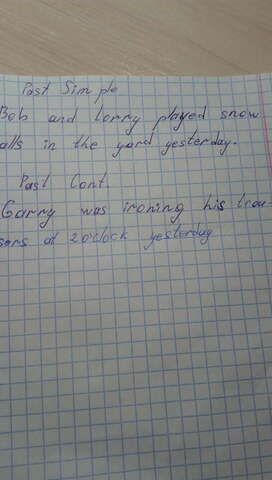 Past Simple
Bob and Lorry played snow
alls in the yard yesterday.
Past Cont.
Garry was ironing his trou-
sers at 2 o'clock yesterday